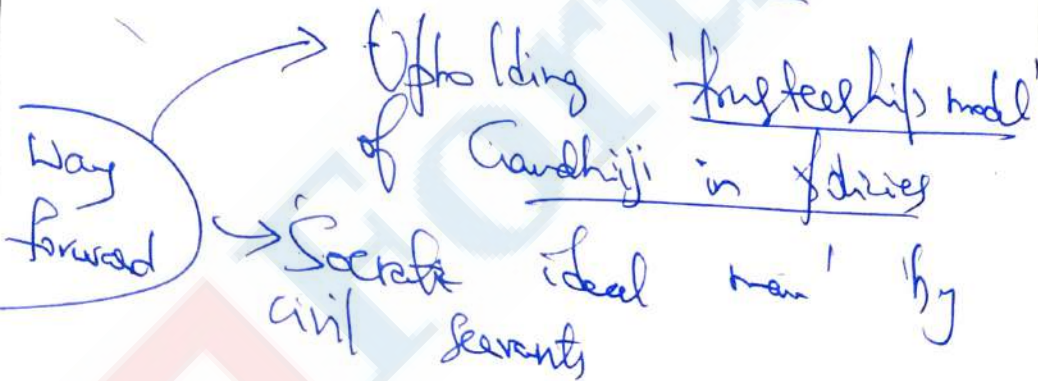 Way
forward
Upholding 'trusteeship model'
of Gandhiji in policies
'Socratic ideal man' by
civil servants